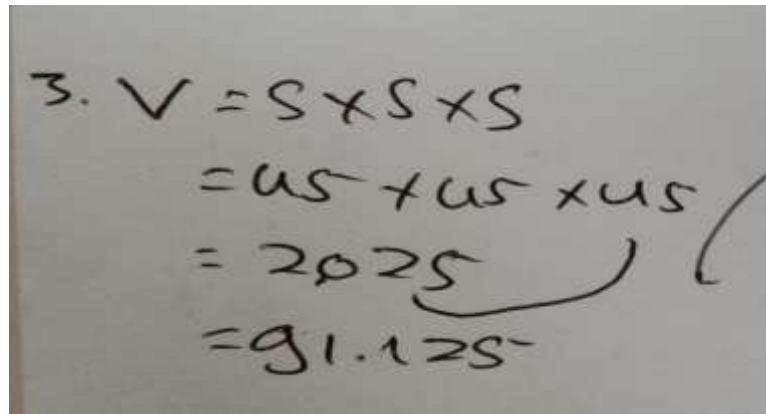 3. V = S × S × S
= 45 × 45 × 45
= 2025
= 91.125